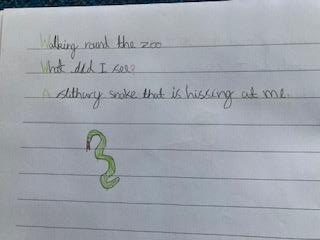 Walking round the zoo
What did I see?
A slithury snake that is hissing at me.